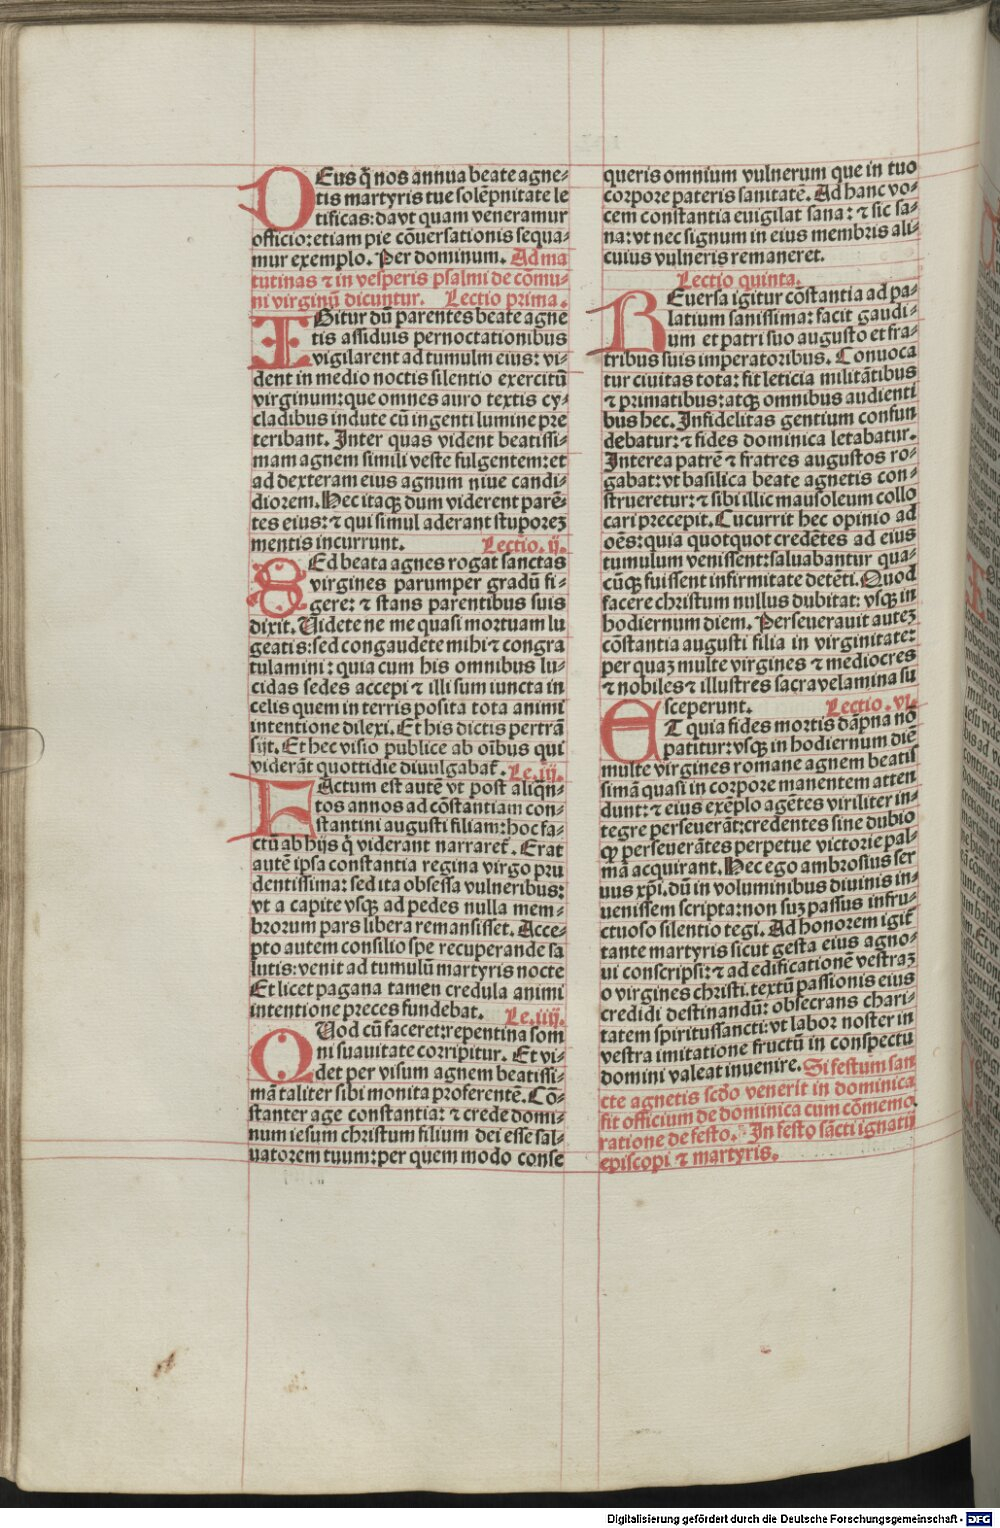 DEus q̄ nos annua beate agne⸗
tis martyris tue solēpnitate le
tificas: da vt quam veneramur
officio: etiam pie cōuersationis sequa⸗
mur exemplo. Per dominum. Ad ma
tutinas ⁊ in vesperis psalmi de cōmu⸗
ni virginū dicuntur. Lectio prima.
IGitur dū parentes beate agne
tis assiduis pernoctationibus
vigilarent ad tumulm eius: vi⸗
dent in medio noctis silentio exercitū
virginum: que omnes auro textis cy⸗
cladibus indute cū ingenti lumine pre
teribant. Inter quas vident beatissi⸗
mam agnem simili veste fulgentem: et
ad dexteram eius agnum niue candi⸗
diorem. Hec itaqꝫ dum viderent parē⸗
tes eius: ⁊ qui simul aderant stuporeꝫ
mentis incurrunt. Lectio. ij.
SEd beata agnes rogat sanctas
virgines parumper gradū fi⸗
gere: ⁊ stans parentibus suis
dixit. Uidete ne me quasi mortuam lu
geatis: sed congaudete mihi ⁊ congra
tulamini: quia cum his omnibus lu⸗
cidas sedes accepi ⁊ illi sum iuncta in
celis quem in terris posita tota animi
intentione dilexi. Et his dictis pertrā
sijt. Et hec visio publice ab oībus qui
viderāt quottidie diuulgabat᷑. Le. iij.
FActum est autē vt post aliqn̄⸗
tos annos ad cōstantiam con⸗
stantini augusti filiam: hoc fa⸗
ctū ab hijs q̄ viderant narraret᷑. Erat
autē ipsa constantia regina virgo pru
dentissima: sed ita obsessa vulneribus:
vt a capite vsqꝫ ad pedes nulla mem⸗
brorum pars libera remansisset. Acce⸗
pto autem consilio spe recuperande sa
lutis: venit ad tumulū martyris nocte
Et licet pagana tamen credula animi
intentione preces fundebat. Le. iiij.
QUod cū faceret: repentina som
ni suauitate corripitur. Et vi⸗
det per visum agnem beatissi⸗
mā taliter sibi monita proferentē. Cō⸗
stanter age constantia: ⁊ crede domi⸗
num iesum christum filium dei esse sal⸗
uatorem tuum: per quem modo conse
queris omnium vulnerum que in tuo
corpore pateris sanitatē. Ad hanc vo⸗
cem constantia euigilat sana: ⁊ sic sa⸗
na: vt nec signum in eius membris ali⸗
cuius vulneris remaneret.
Lectio quinta.
REuersa igitur cōstantia ad pa⸗
latium sanissima: facit gaudi⸗
um et patri suo augusto et fra⸗
tribus suis imperatoribus. Conuoca
tur ciuitas tota: fit leticia militātibus
⁊ primatibus: atqꝫ omnibus audienti
bus hec. Infidelitas gentium confun
debatur: ⁊ fides dominica letabatur.
Interea patrē ⁊ fratres augustos ro⸗
gabat: vt basilica beate agnetis con⸗
strueretur: ⁊ sibi illic mausoleum collo
cari precepit. Cucurrit hec opinio ad
oēs: quia quotquot credētes ad eius
tumulum venissent: saluabantur qua⸗
cūqꝫ fuissent infirmitate detēti. Quod
facere christum nullus dubitat: vsqꝫ in
hodiernum diem. Perseuerauit auteꝫ
cōstantia augusti filia in virginitate:
per quaꝫ multe virgines ⁊ mediocres
⁊ nobiles ⁊ illustres sacra velamina su
sceperunt. Lectio. vi.
ET quia fides mortis dāpna nō
patitur: vsqꝫ in hodiernum diē
multe virgines romane agnem beatis
simā quasi in corpore manentem atten
dunt: ⁊ eius exēplo agētes viriliter in⸗
tegre perseuerāt: credentes sine dubio
ꝙ perseuerātes perpetue victorie pal⸗
mā acquirant. Hec ego ambrosius ser
uus xp̄i. dū in voluminibus diuinis in⸗
uenissem scripta: non suꝫ passus infru⸗
ctuoso silentio tegi. Ad honorem igit᷑
tante martyris sicut gesta eius agno⸗
ui conscripsi: ⁊ ad edificationē vestraꝫ
o virgines christi. textū passionis eius
credidi destinandū: obsecrans chari⸗
tatem spiritussancti: vt labor noster in
vestra imitatione fructū in conspectu
domini valeat inuenire. Si festum san
cte agnetis scd̄o venerit in dominica
fit officium de dominica cum cōmemo
ratione de festo. In festo sācti ignatij
episcopi ⁊ martyris.
Digitalisierung gefördert durch die Deutsche Forschungsgemeinschaft - DFG